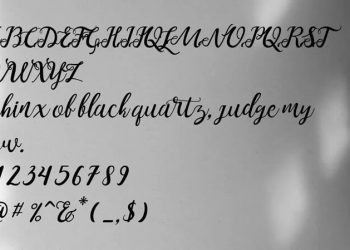 BCDEFGHIJKLMNOPQRST
WXYZ
hinx of black quartz, judge my
w.
123456789
@#%^&*(_,$)